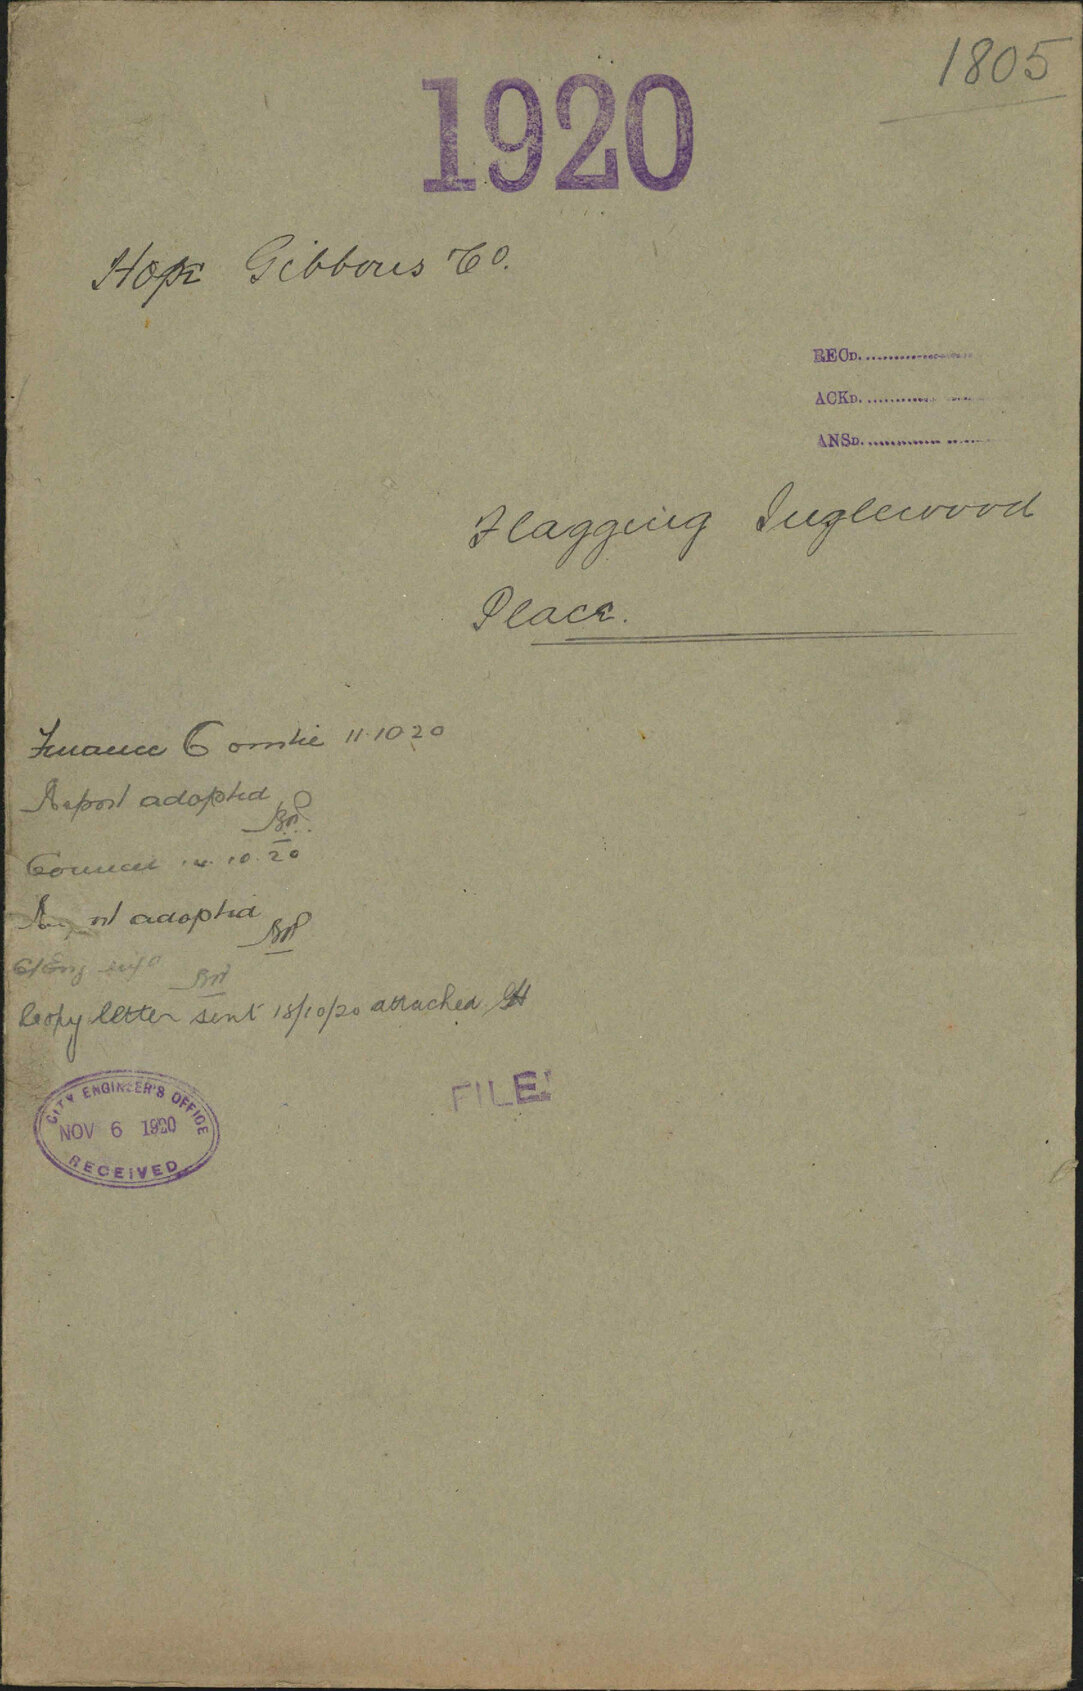 1805
1920
Hope Gibbons Co.
RECD.
ACKD.
ANSD.
Flagging Inglewood
Place.
Finance Comtee 11.10 20
Report adopted
Council 10.20
Report adopted
Copy letter sent 18/10/20 attached
CITY ENGINEER'S OFFICE
NOV 6 1920
RECEIVED
FILE